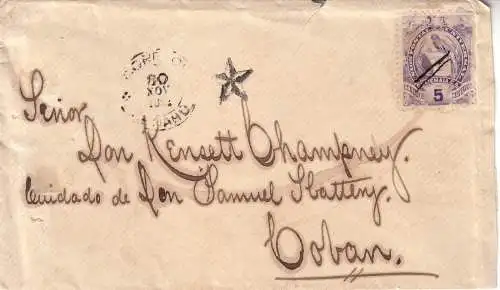 5
Señor
Don Kensett Champney.
Cuidado de Don Samuel Slattery.
Coban.